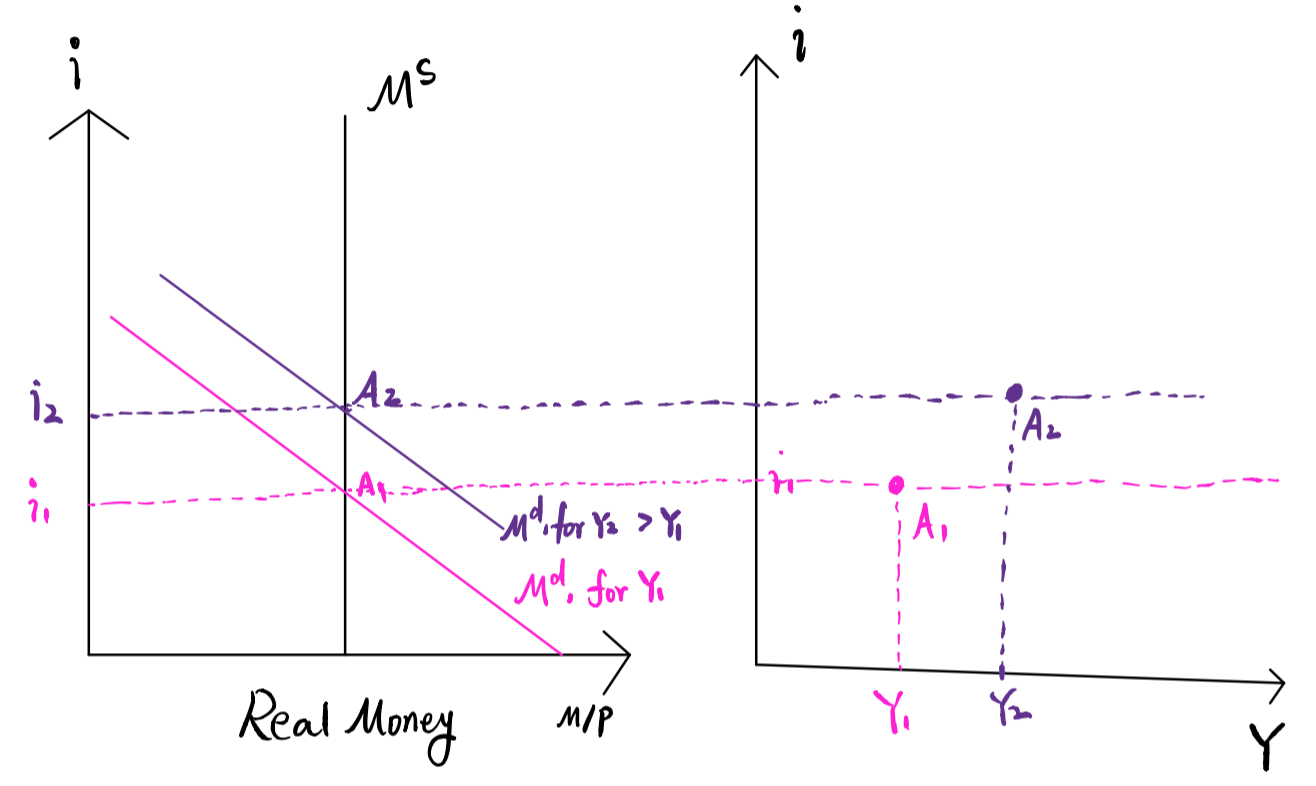 i
M^S
i₂
i₁
A₂
A₁
M^d, for Y₂ > Y₁
M^d, for Y₁
Real Money
M/P
i
i₁
A₂
A₁
Y₁
Y₂
Y